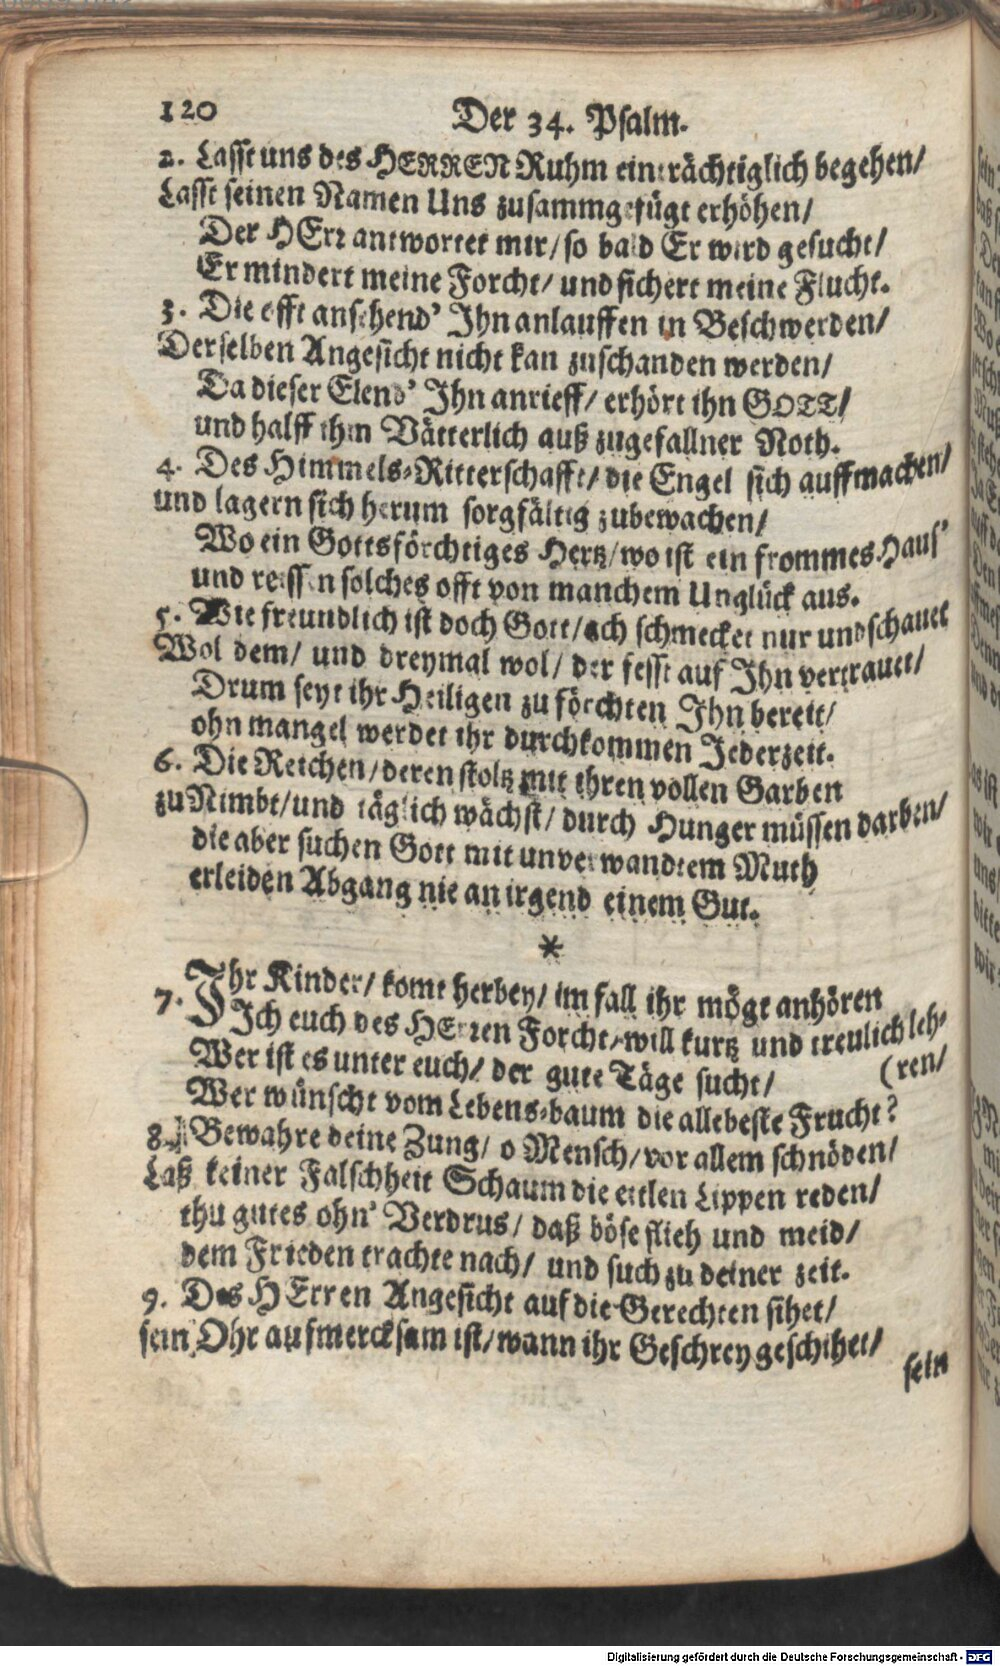 120 Der 34. Psalm.
2. Lasst uns des HERREN Ruhm einträchtiglich begehen/
Lasst seinen Namen Uns zusammgefügt erhöhen/
Der HErr antwortet mir/ so bald Er wird gesucht/
Er mindert meine Forcht/ und sichert meine Flucht.
3. Die offt ansehend' Ihn anlauffen in Beschwerden/
Derselben Angesicht nicht kan zuschanden werden/
Da dieser Elend' Ihn anrieff/ erhört ihn GOTT/
und halff ihm Vätterlich auß zugefallner Noth.
4. Des Himmels-Ritterschafft/ die Engel sich auffmachen/
und lagern sich herum sorgfältig zubewachen/
Wo ein Gottsförchtiges Hertz/ wo ist ein frommes Haus'
und reissen solches offt von manchem Unglück aus.
5. Wie freundlich ist doch Gott/ ach schmecket nur und schauet
Wol dem/ und dreymal wol/ der fesst auf Ihn vertrauet/
Drum seyt ihr Heiligen zu förchten Ihn bereit/
ohn mangel werdet ihr durchkommen Jederzeit.
6. Die Reichen/ deren stoltz mit ihren vollen Garben
zuNimbt/ und täglich wächst/ durch Hunger müssen darben/
die aber suchen Gott mit unverwandtem Muth
erleiden Abgang nie an irgend einem Gut.
*
7. Ihr Kinder/ komt herbey/ im fall ihr mögt anhören
Ich euch des HErren Forcht/ will kurtz und treulich leh-
Wer ist es unter euch/ der gute Täge sucht/ (ren/
Wer wünscht vom Lebens-baum die allebeste Frucht?
8. Bewahre deine Zung/ o Mensch/ vor allem schnöden/
Laß keiner Falschheit Schaum die eitlen Lippen reden/
thu gutes ohn' Verdrus/ daß böse flieh und meid/
dem Frieden trachte nach/ und such zu deiner zeit.
9. Des HErren Angesicht auf die Gerechten sihet/
sein Ohr aufmercksam ist/ wann ihr Geschrey geschihet/
sein
Digitalisierung gefördert durch die Deutsche Forschungsgemeinschaft - DFG